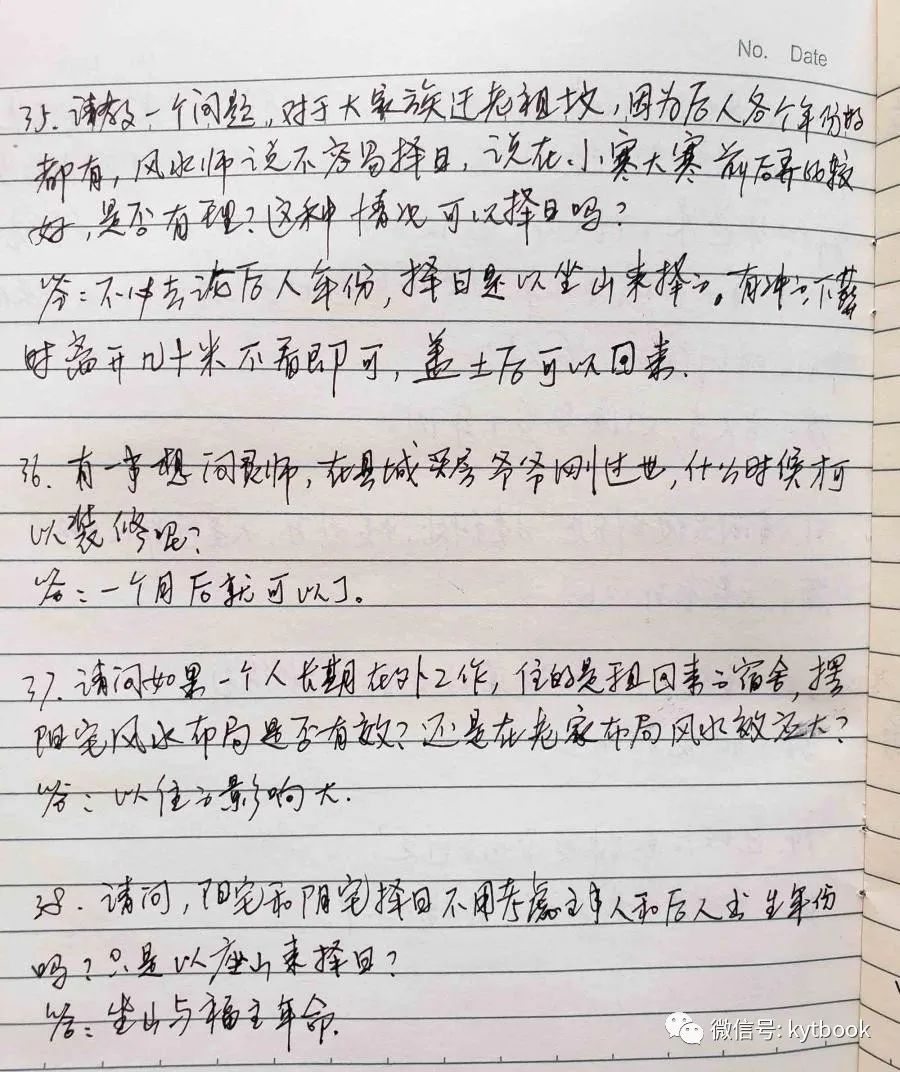 No. Date
35. 请教一个问题,对于大家族迁老祖坟,因为后人各个年份的
都有,风水师说不容易择日,说在小寒大寒前后弄比较
好,是否有理?这种情况可以择日吗?
答:不去论后人年份,择日是以坐山来择的。有冲的下葬
时离开几十米不看即可,盖土后可以回来.
36. 有一事想问老师,在县城买房爷爷刚过世,什么时候可
以装修呢?
答:一个月后就可以了。
37. 请问如果一个人长期在外工作,住的是租回来的宿舍,摆
阳宅风水布局是否有效?还是在老家布局风水效应大?
答:以住的影响大.
38. 请问,阳宅和阴宅择日不用考虑主事人和后人出生年份
吗?只是以座山来择日?
答:坐山与福主年命.
微信号: kytbook